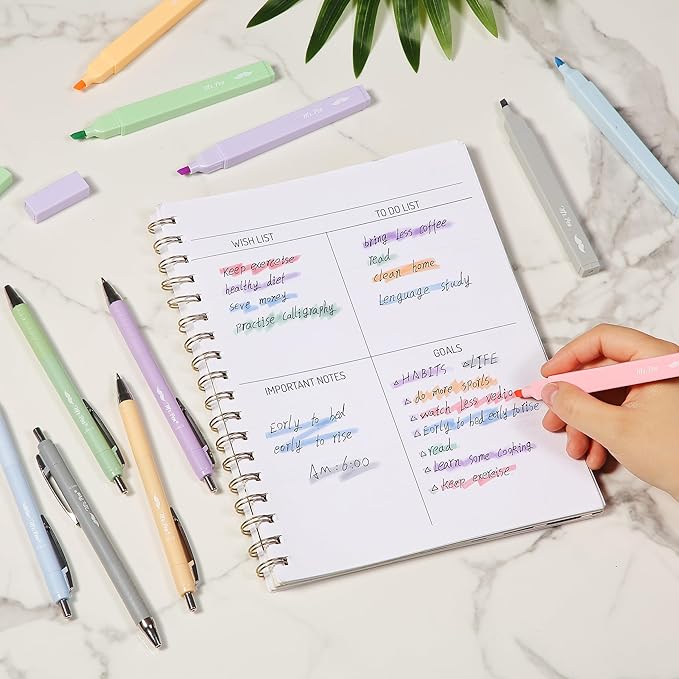 Mr. Pen
Mr. Pen
Mr. Pen
WISH LIST
Keep exercise
healthy diet
seve money
practise calligraphy
TO DO LIST
bring Less coffee
read
clean home
Lenguage study
IMPORTANT NOTES
Early to bed
early to rise
Am:6:00
GOALS
△HABITS △LIFE
△do more sports
△watch Less vedio
△Early to bed early to rise
△read
△Learn some cooking
△keep exercise